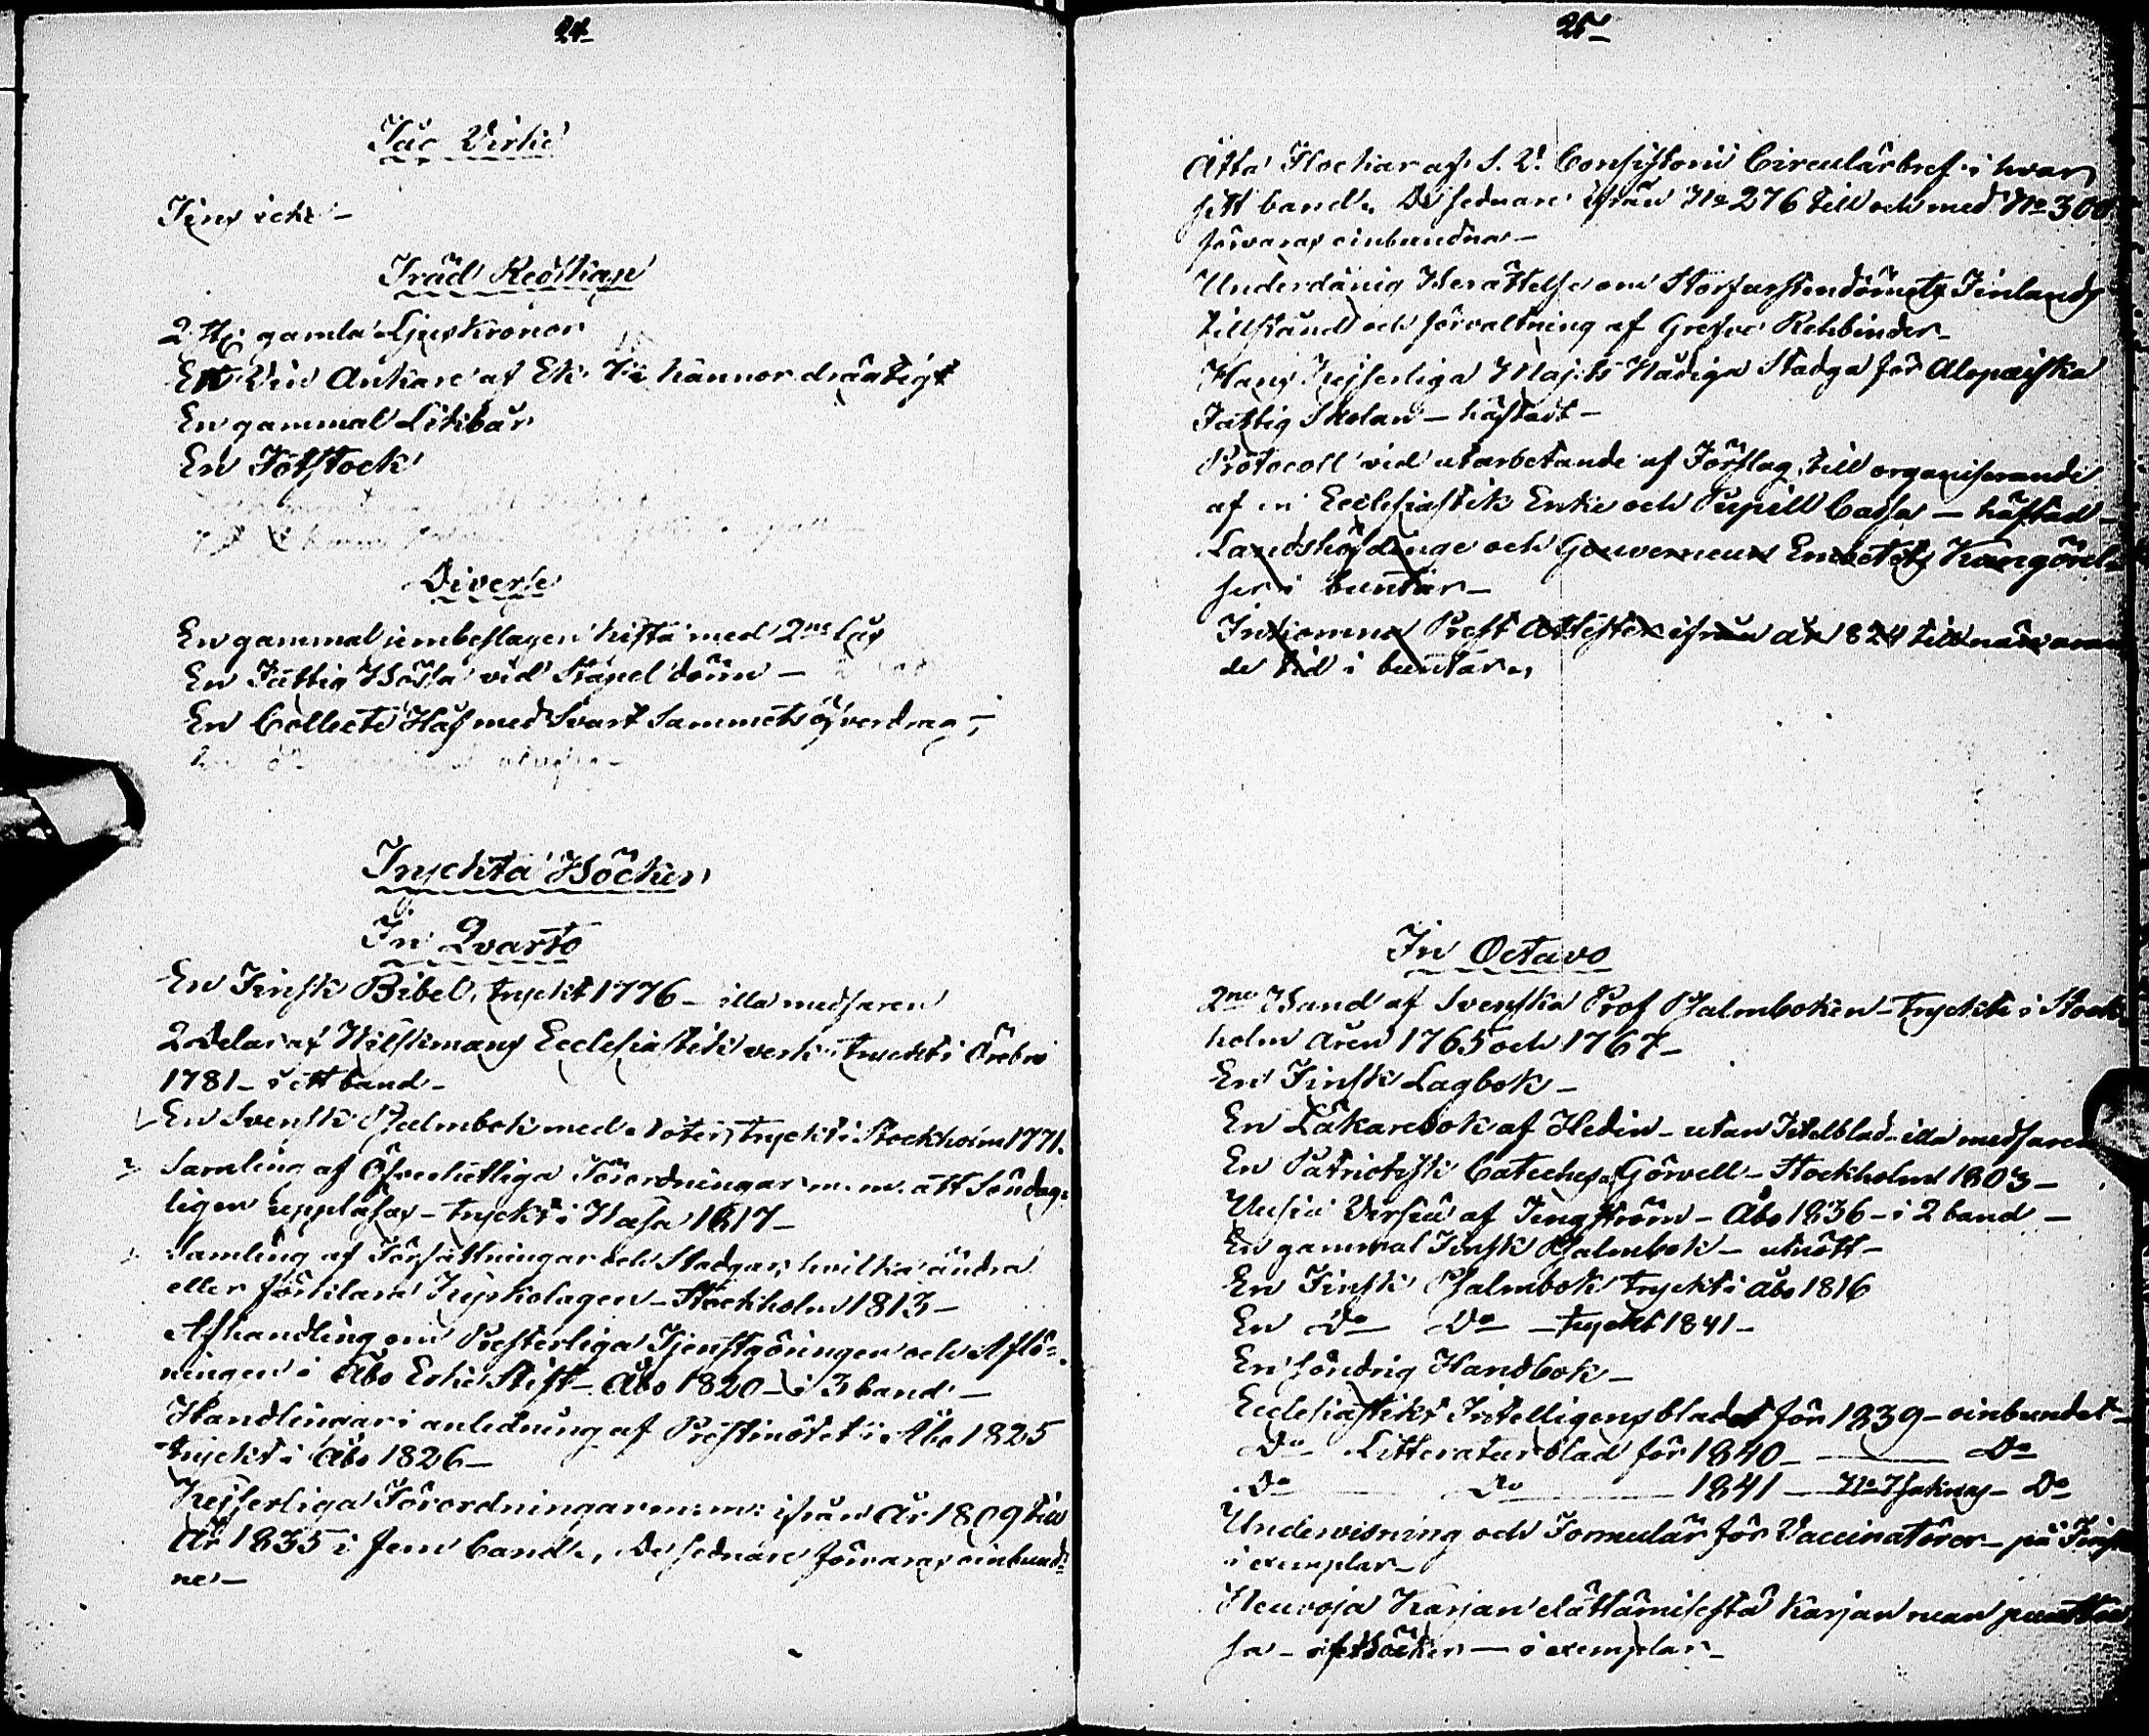 24
Jäc Virke
Fins icke –
Träd Redskap
2 st: gamla Ljuskronor
Ett Vin Ankare af Ek kannor drägtigt
En gammal Likbår
En Fotstock
Diverse
En gammal jernbeslagen kista med 2ne Lås
En Fattig Bössa vid Stapel dörrn –
En Collecte Håf med Svart Sammets öfverdrag –
Tryckta Böcker
In Qvarto
En Finsk Bibel, tryckt 1776 – illa medfaren
2 Delar af Wilskmans Ecclesiastik verk tryckt i Örebro
1781 – i ett band –
En Svensk Psalmbok med Noter, tryckt i Stockholm 1771.
Samling af Öfverhetliga Förordningar m.m. att Söndag-
ligen uppläsas – tryckt i Wasa 1817 –
Samling af Författningar och Stadgar, hvilka ändra
eller förklara Kyrkolagen – Stockholm 1813 –
Afhandling om Presterliga Tjenstgöringen och Aflö-
ningen i Åbo Erke Stift – Åbo 1820 – i 3 band –
Handlingar i anledning af Prestmötet i Åbo 1825
tryckt i Åbo 1826 –
Kejserliga Förordningar m.m: ifrån År 1809 till
År 1835 i fem band, De sednare förvaras oinbund-
ne –
25
Åtta Flockar af S. V. Consistorii Circulärbref i hvar
sitt band. De sednare ifrån No 276 till och med No 300
förvaras oinbundna –
Underdånig Berättelse om Storfurstendömets Finlands
tillstånd och förvaltning af Grefve Rehbinder –
Hans Kejserliga Maj:ts Nådiga Stadga för Alopæiska
Fattig Skolan – häftad –
Protocoll vid utarbetande af Förslag till organiserande
af en Ecclesiastik Enke och Pupill Cassa – häftad –
Landshöfdinge och Gouverneurs Embetets Kungörel-
ser i buntar –
Inkomna Prest Attester ifrån år 824 till närvaran
de tid i buntar,
In Octavo
2ne Band af Svenska Prof Psalmboken – tryckte i Stock-
holm åren 1765 och 1767 –
En Finsk Lagbok –
En Läkarebok af Hedin – utan Titelblad – illa medfaren
En Patriotisk Cateches af Görvell – Stockholm 1803 –
Uusia Virsiä af Tengström – Åbo 1836 – i 2 band –
En gammal Finsk Psalmbok – utnött –
En Finsk Psalmbok tryckt i Åbo 1816
En Do Do – tryckt 1841 –
En söndrig Handbok –
Ecclesiastikt Intelligens bladet för 1839 – oinbundet –
Do Litteraturblad för 1840 – Do
Do Do 1841 – No 7 saknas – Do
Undervisning och Formulär för Vaccinatörer – på Finska
exemplar –
Neuvoja Karjan elättämisestä Karjan ruan puuttue
sa – exemplar –